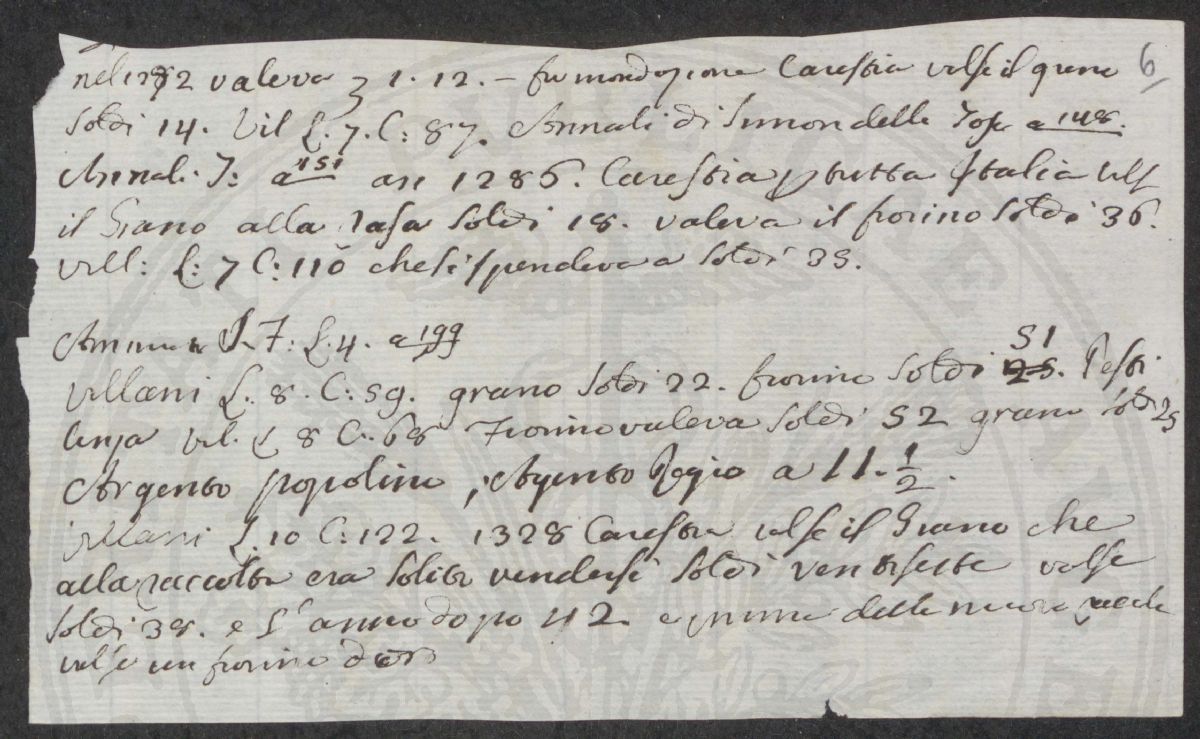 nel 1282 valeva 1. 12. – fu inondazione Carestia valse il grano 6
soldi 14. Vil L. 7. C: 87. Annali di Simon della Tosa a 148.
Annali. T: a 151 an 1286. Carestia p tutta Italia valse
il Grano alla rasa soldi 18. valeva il fiorino soldi 36.
Vill: L: 7 C: 110 che si spendeva a soldi 35.
T. 7: L. 4. a 199
Villani L. 8. C: 59. grano soldi 22. fiorino soldi 51 25. Pesti
lenza Vil. L 8 C. 68 Fiorino valeva soldi 52 grano soldi 25
Argento popolino, Argento Regio a 11. 1/2.
Villani L. 10 C: 122. 1328 Carestia valse il Grano che
alla raccolta era solito vendersi soldi ventisette valse
soldi 38. e l'anno dopo 42. e prima della nuova
valse un fiorino d'oro